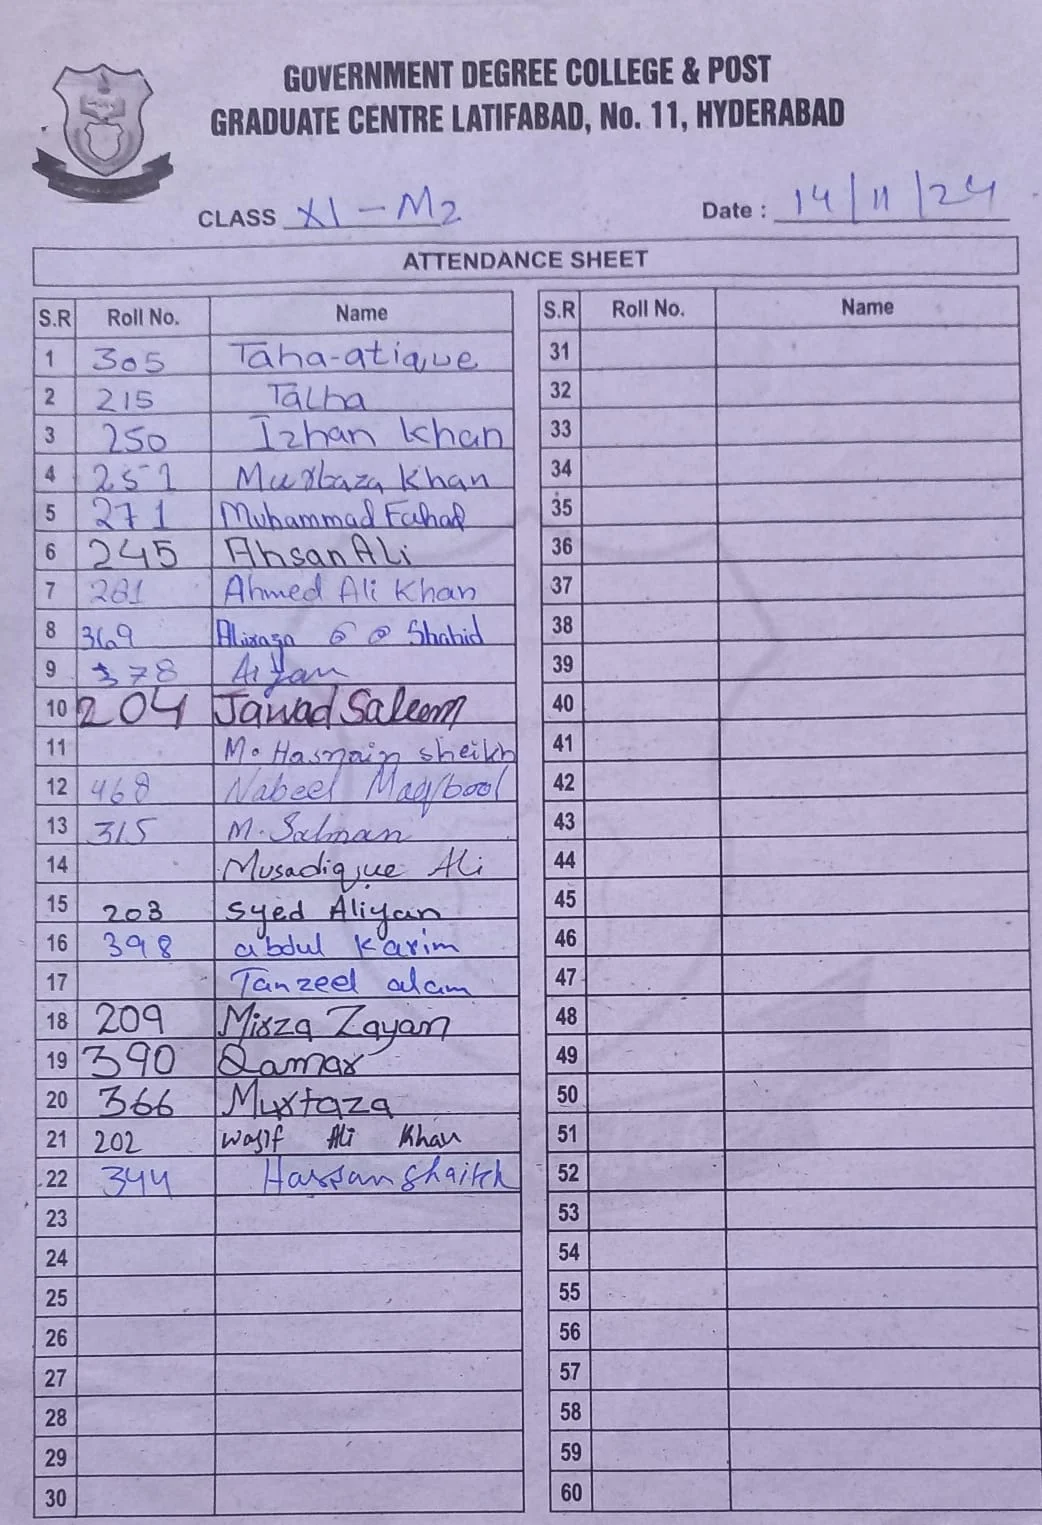 GOVERNMENT DEGREE COLLEGE & POST
GRADUATE CENTRE LATIFABAD, No. 11, HYDERABAD
CLASS XI - M2 Date : 14/11/24
ATTENDANCE SHEET
S.R Roll No. Name S.R Roll No. Name
1 305 Taha-atique 31
2 215 Talha 32
3 250 Izhan Khan 33
4 251 Murtaza Khan 34
5 271 Muhammad Fahad 35
6 245 Ahsan Ali 36
7 281 Ahmed Ali Khan 37
8 369 Aliraza Shahid 38
9 378 Aryan 39
10 204 Jawad Saleem 40
11 M. Hasnain sheikh 41
12 468 Nabeel Maqbool 42
13 315 M. Salman 43
14 Musadique Ali 44
15 203 Syed Aliyan 45
16 398 abdul karim 46
17 Tanzeel alam 47
18 209 Mirza Zayan 48
19 390 Qamar 49
20 366 Murtaza 50
21 202 Wasif Ali Khan 51
22 344 Hassan Shaikh 52
23 53
24 54
25 55
26 56
27 57
28 58
29 59
30 60